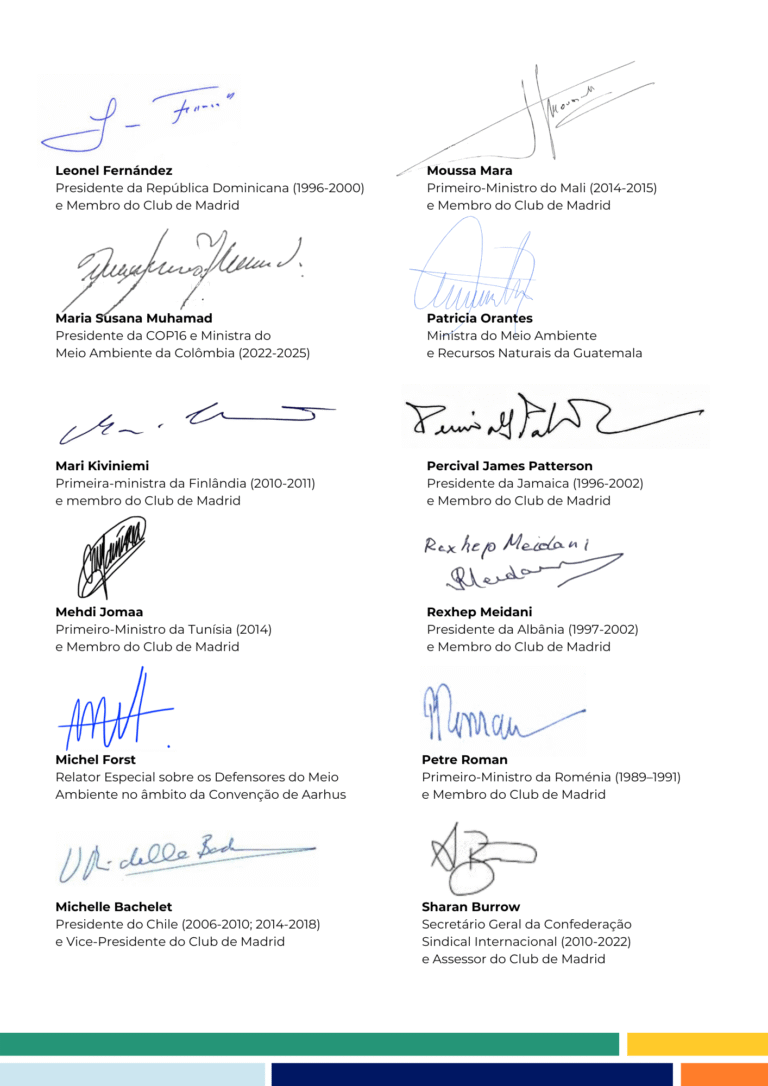 Leonel Fernández
Presidente da República Dominicana (1996-2000)
e Membro do Club de Madrid
Moussa Mara
Primeiro-Ministro do Mali (2014-2015)
e Membro do Club de Madrid
Maria Susana Muhamad
Presidente da COP16 e Ministra do
Meio Ambiente da Colômbia (2022-2025)
Patricia Orantes
Ministra do Meio Ambiente
e Recursos Naturais da Guatemala
Mari Kiviniemi
Primeira-ministra da Finlândia (2010-2011)
e membro do Club de Madrid
Percival James Patterson
Presidente da Jamaica (1996-2002)
e Membro do Club de Madrid
Mehdi Jomaa
Primeiro-Ministro da Tunísia (2014)
e Membro do Club de Madrid
Rexhep Meidani
Rexhep Meidani
Presidente da Albânia (1997-2002)
e Membro do Club de Madrid
Michel Forst
Relator Especial sobre os Defensores do Meio
Ambiente no âmbito da Convenção de Aarhus
Petre Roman
Primeiro-Ministro da Roménia (1989–1991)
e Membro do Club de Madrid
Michelle Bachelet
Presidente do Chile (2006-2010; 2014-2018)
e Vice-Presidente do Club de Madrid
Sharan Burrow
Secretário Geral da Confederação
Sindical Internacional (2010-2022)
e Assessor do Club de Madrid